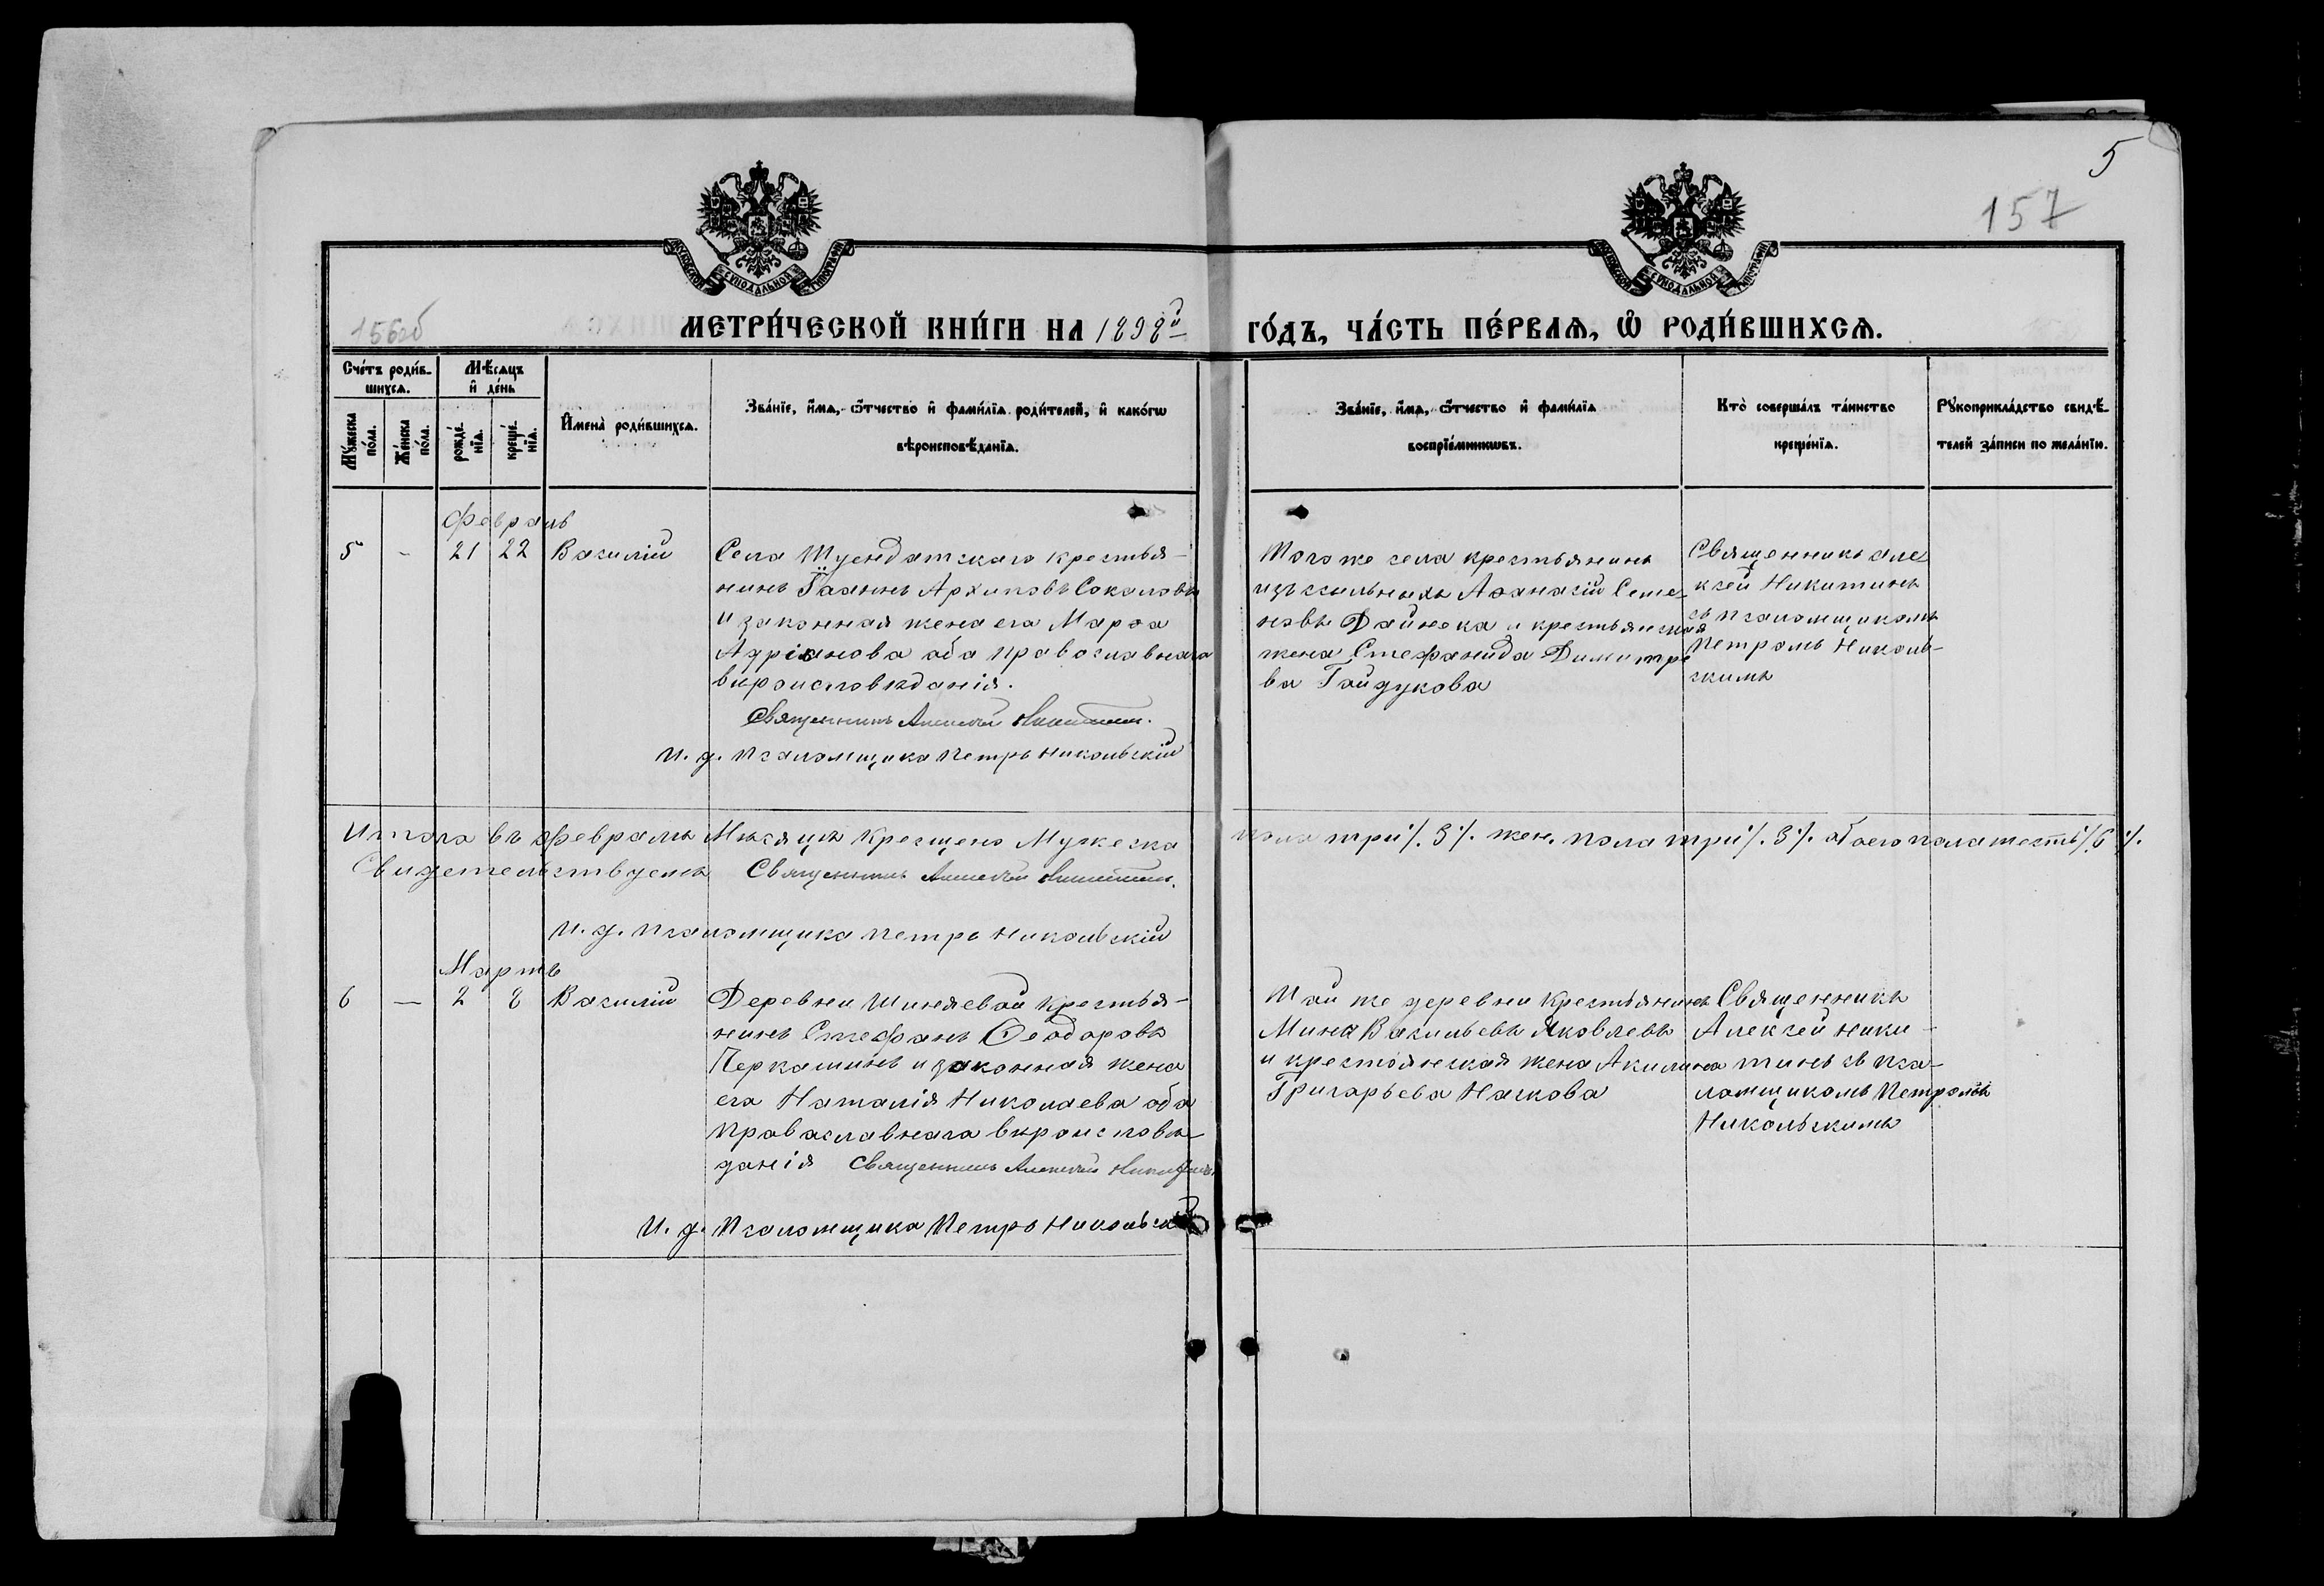 5
157
156об
МОСКОВСКОЙ СѴНОДАЛЬНОЙ ТИПОГРАФІИ
МОСКОВСКОЙ СѴНОДАЛЬНОЙ ТИПОГРАФІИ
МЕТРИ́ЧЕСКОЙ КНИ́ГИ НА 1898й
ГО́ДЪ, ЧА́СТЬ ПЕ́РВАЯ, Ѡ РОДИ́ВШИХСЯ.
Сче́тъ роди́в-
шихся.
Мѣ́сяцъ
и де́нь
Му́жеска
по́ла.
Же́нска
по́ла.
рожде́-
нїя.
креще́-
нїя.
Имена̀ роди́вшихся.
Зва́нїе, и́мя, ѻ́тчество и фами́лїя роди́телей, и како́гѡ
вѣроисповѣ́данїя.
Зва́нїе, и́мя, ѻ́тчество и фами́лїя
воспрїе́мникѡвъ.
Кто̀ соверша́лъ та́инство
креще́нїя.
Рꙋкоприкла́дство свидѣ́-
телей за́писи по жела́нїю.
Февраль
5 - 21 22 Василій
Села Туендатскаго крестья-
нинъ Іоаннъ Архиповъ Соколовъ
и законная жена его Марѳа
Адріанова оба православнаго
вѣроисповѣданія.
Священникъ Алексѣй Никитинъ.
И. д. Псаломщика Петръ Никольскій
Того же села крестьянинъ
изъ ссыльныхъ Аѳанасій Семе-
новъ Дайнека и крестьянская
жена Стефанида Димитрі
ва Гайдукова
Священникъ Але
ксѣй Никитинъ
съ псаломщикомъ
Петромъ Николь-
скимъ
Итого въ Февралѣ Мѣсяцѣ крещено Мужеска
пола три ⁒ 3 ⁒. жен. пола три ⁒ 3 ⁒. обоего пола шесть ⁒ 6 ⁒.
Свидетельствуемъ Священникъ Алексѣй Никитинъ.
И. д. псаломщика Петръ Никольскій
Мартъ
6 — 2 8 Василій
Деревни Шиняевой крестья-
нинъ Стефанъ Ѳеодоровъ
Перкашинъ и законная жена
его Наталія Николаева оба
православнаго вѣроисповѣ-
данія Священникъ Алексѣй Никитинъ
И. д. Псаломщика Петръ Никольскій
Той же деревни крестьянинъ
Мина Васильевъ Яковлевъ
и крестьянская жена Акилина
Григорьева Наскова
Священникъ
Алексѣй Ники-
тинъ съ пса-
ломщикомъ Петромъ
Никольскимъ